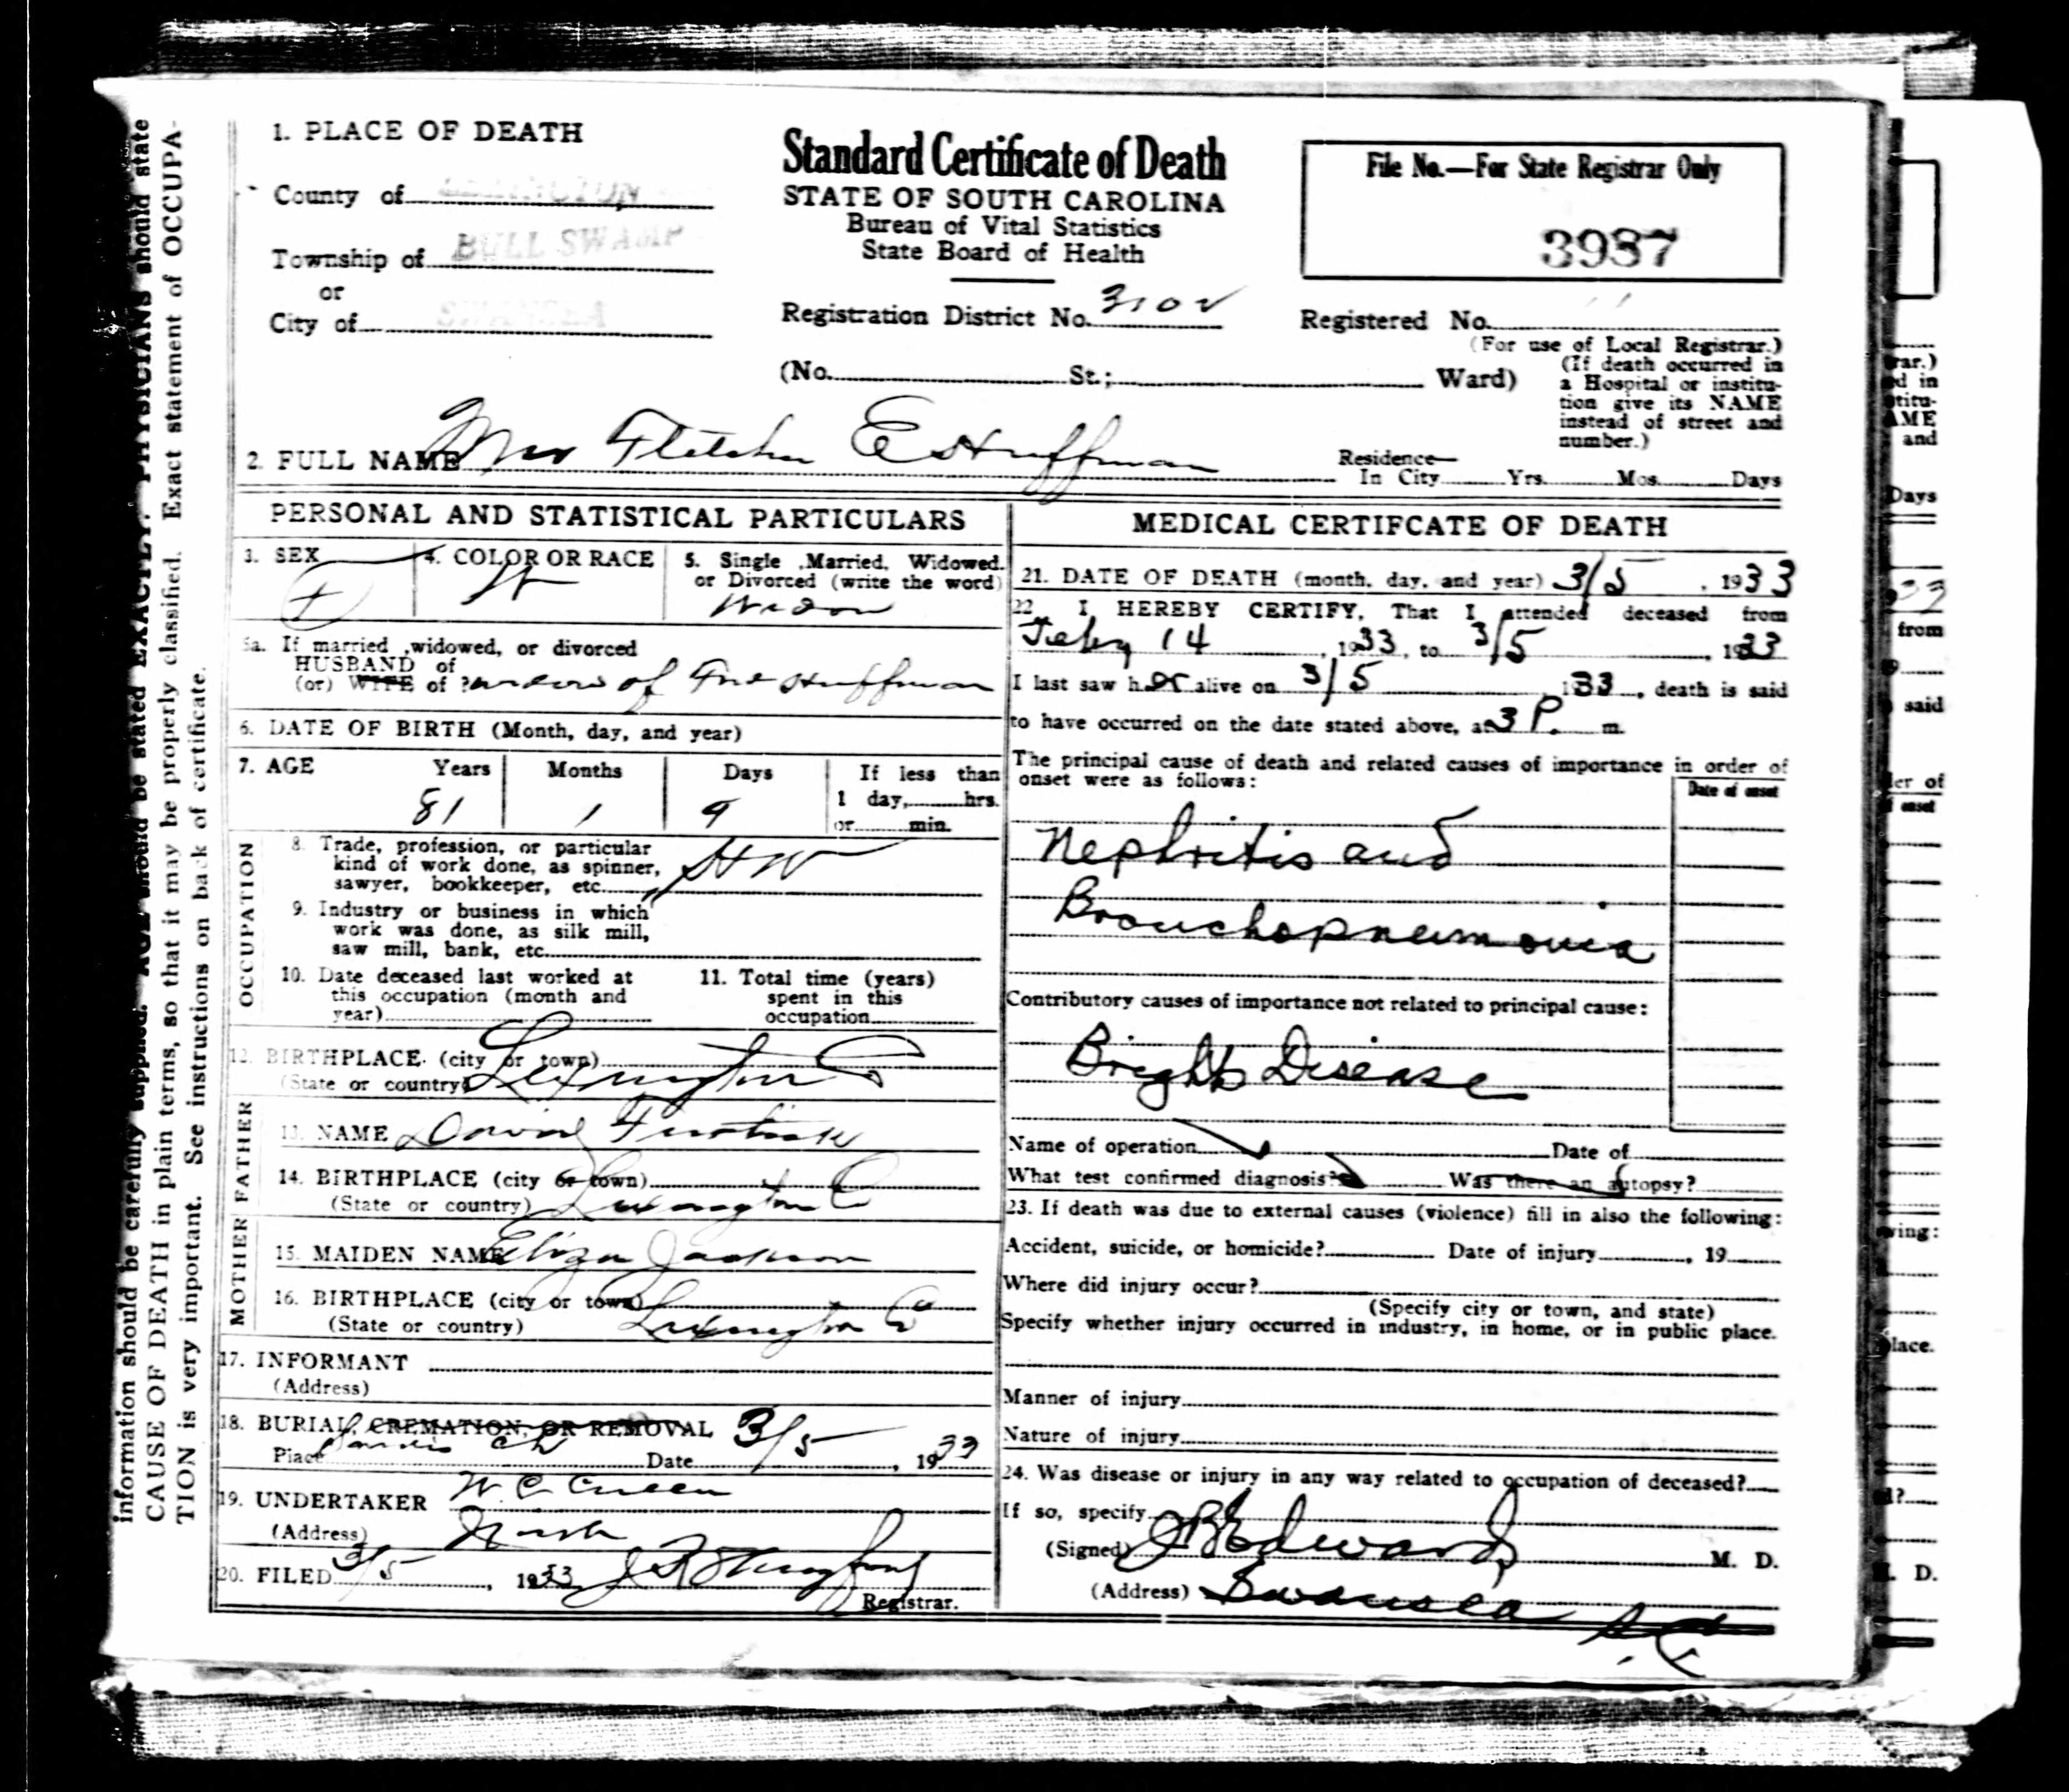 information should be carefully supplied. AGE should be stated EXACTLY. PHYSICIANS should state
CAUSE OF DEATH in plain terms, so that it may be properly classified. Exact statement of OCCUPA-
TION is very important. See instructions on back of certificate.
1. PLACE OF DEATH
County of LEXINGTON
Township of BULL SWAMP
or
City of SWANSEA
Standard Certificate of Death
STATE OF SOUTH CAROLINA
Bureau of Vital Statistics
State Board of Health
Registration District No. 3102
File No.—For State Registrar Only
3987
Registered No. 11
(For use of Local Registrar.)
(No. St.; Ward)
(If death occurred in
a Hospital or institu-
tion give its NAME
instead of street and
number.)
2. FULL NAME Mrs Fletcher E Huffman
Residence—
In City Yrs. Mos. Days
PERSONAL AND STATISTICAL PARTICULARS
3. SEX
F
4. COLOR OR RACE
W
5. Single ,Married, Widowed,
or Divorced (write the word)
Widow
5a. If married ,widowed, or divorced
HUSBAND of
(or) WIFE of ? widow of Huffman
6. DATE OF BIRTH (Month, day, and year)
7. AGE Years Months Days If less than
1 day, hrs.
81 1 9 or min.
OCCUPATION
8. Trade, profession, or particular
kind of work done, as spinner,
sawyer, bookkeeper, etc. HW
9. Industry or business in which
work was done, as silk mill,
saw mill, bank, etc.
10. Date deceased last worked at
this occupation (month and
year)
11. Total time (years)
spent in this
occupation
12. BIRTHPLACE (city or town)
(State or country) Lexington C
FATHER
13. NAME David
14. BIRTHPLACE (city or town)
(State or country) Lexington C
MOTHER
15. MAIDEN NAME Eliza Jackson
16. BIRTHPLACE (city or town)
(State or country) Lexington Co
17. INFORMANT
(Address)
18. BURIAL, CREMATION, OR REMOVAL
Place Ch Date 3/5, 1933
19. UNDERTAKER W. C.
(Address)
20. FILED 3/5, 1933
Registrar.
MEDICAL CERTIFCATE OF DEATH
21. DATE OF DEATH (month, day, and year) 3/5, 1933
22 I HEREBY CERTIFY, That I attended deceased from
Feby 14, 1933, to 3/5, 1933
I last saw her alive on 3/5, 133, death is said
to have occurred on the date stated above, at 3 P. m.
The principal cause of death and related causes of importance in order of
onset were as follows:
Date of onset
Nephritis and
Bronchopneumonia
Contributory causes of importance not related to principal cause:
Brights Disease
Name of operation Date of
What test confirmed diagnosis? Was there an autopsy?
23. If death was due to external causes (violence) fill in also the following:
Accident, suicide, or homicide? Date of injury, 19
Where did injury occur?
(Specify city or town, and state)
Specify whether injury occurred in industry, in home, or in public place.
Manner of injury
Nature of injury
24. Was disease or injury in any way related to occupation of deceased?
If so, specify
(Signed) J B Edwards M. D.
(Address) Swansea S.C.
rar.)
d in
titu-
AME
and
Days
33
from
said
der of
onset
wing:
place.
d?
. D.